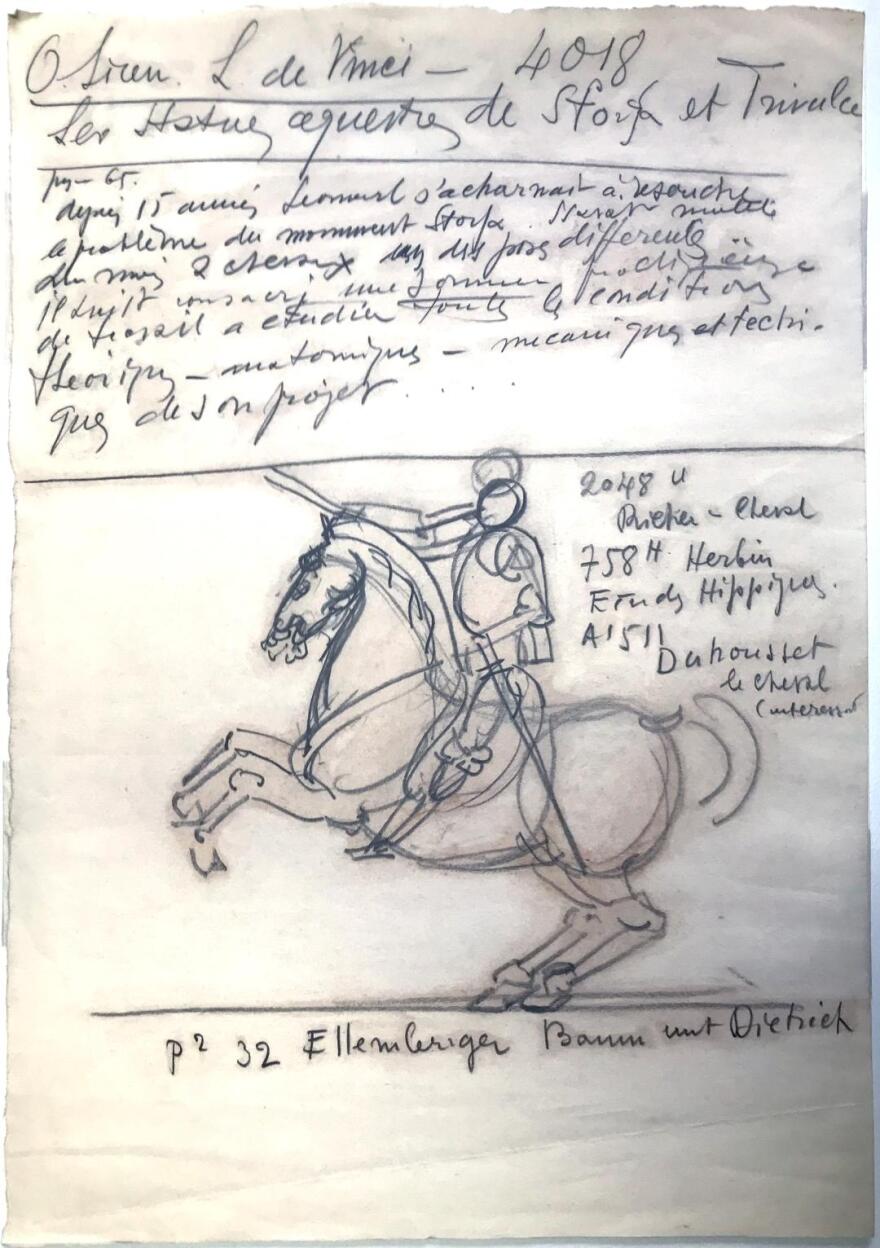 O. Siren. L. de Vinci — 4018
Les Statues equestres de Sforza et Trivulce
pge 65.
depuis 15 années Leonard s'acharnait à resoudre
le problème du monument Sforza.
du moins 2 chevaux dans des poses differentes
il avait consacré une somme prodigieuse
de travail a etudier toutes les conditions
theoriques – anatomiques – mecaniques et techni-
ques de son projet . . . . .
2048 u
Cheval
758 H Herbin
Etudes Hippiques.
A1511
Duhousset
le cheval
(interessant
p² 32 Ellemberiger Baum unt Dietrich